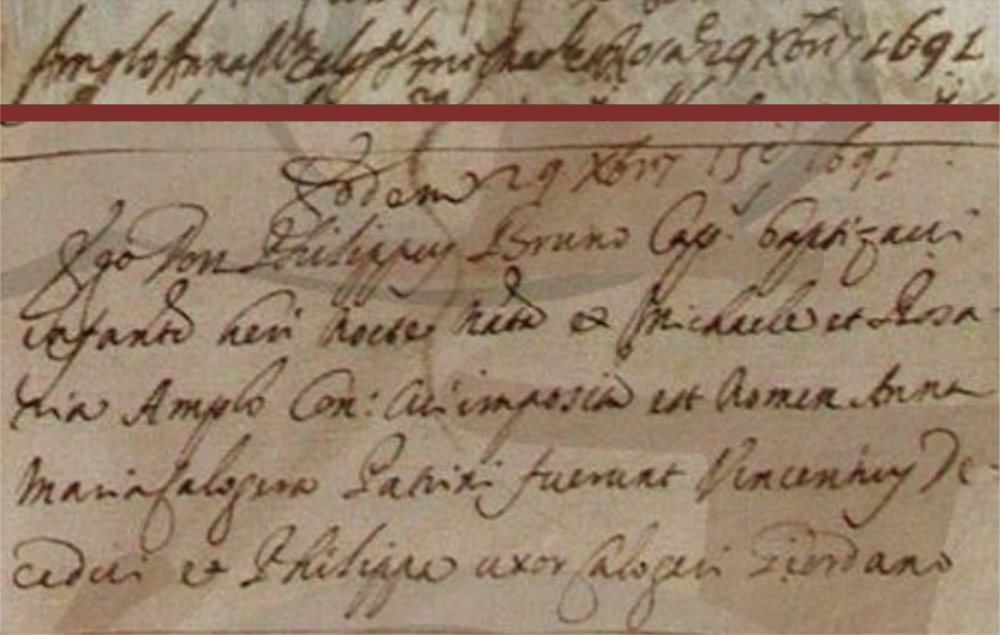 Amplo Anna M.ª Calog.ª di Michaele e Rosa 29 Xbris 1691
Eodem 29 Xbris 15 i 1691
Ego Don Philippus Bruno Capp. baptizavi
infantē heri nocte natā ex Michaele et Rosa
ria Amplo Con: Cui impositū est nomen Anna
Maria Calogera Patrini fuerunt Vincentius De
cedui et Philippa uxor Calogeri Giordano